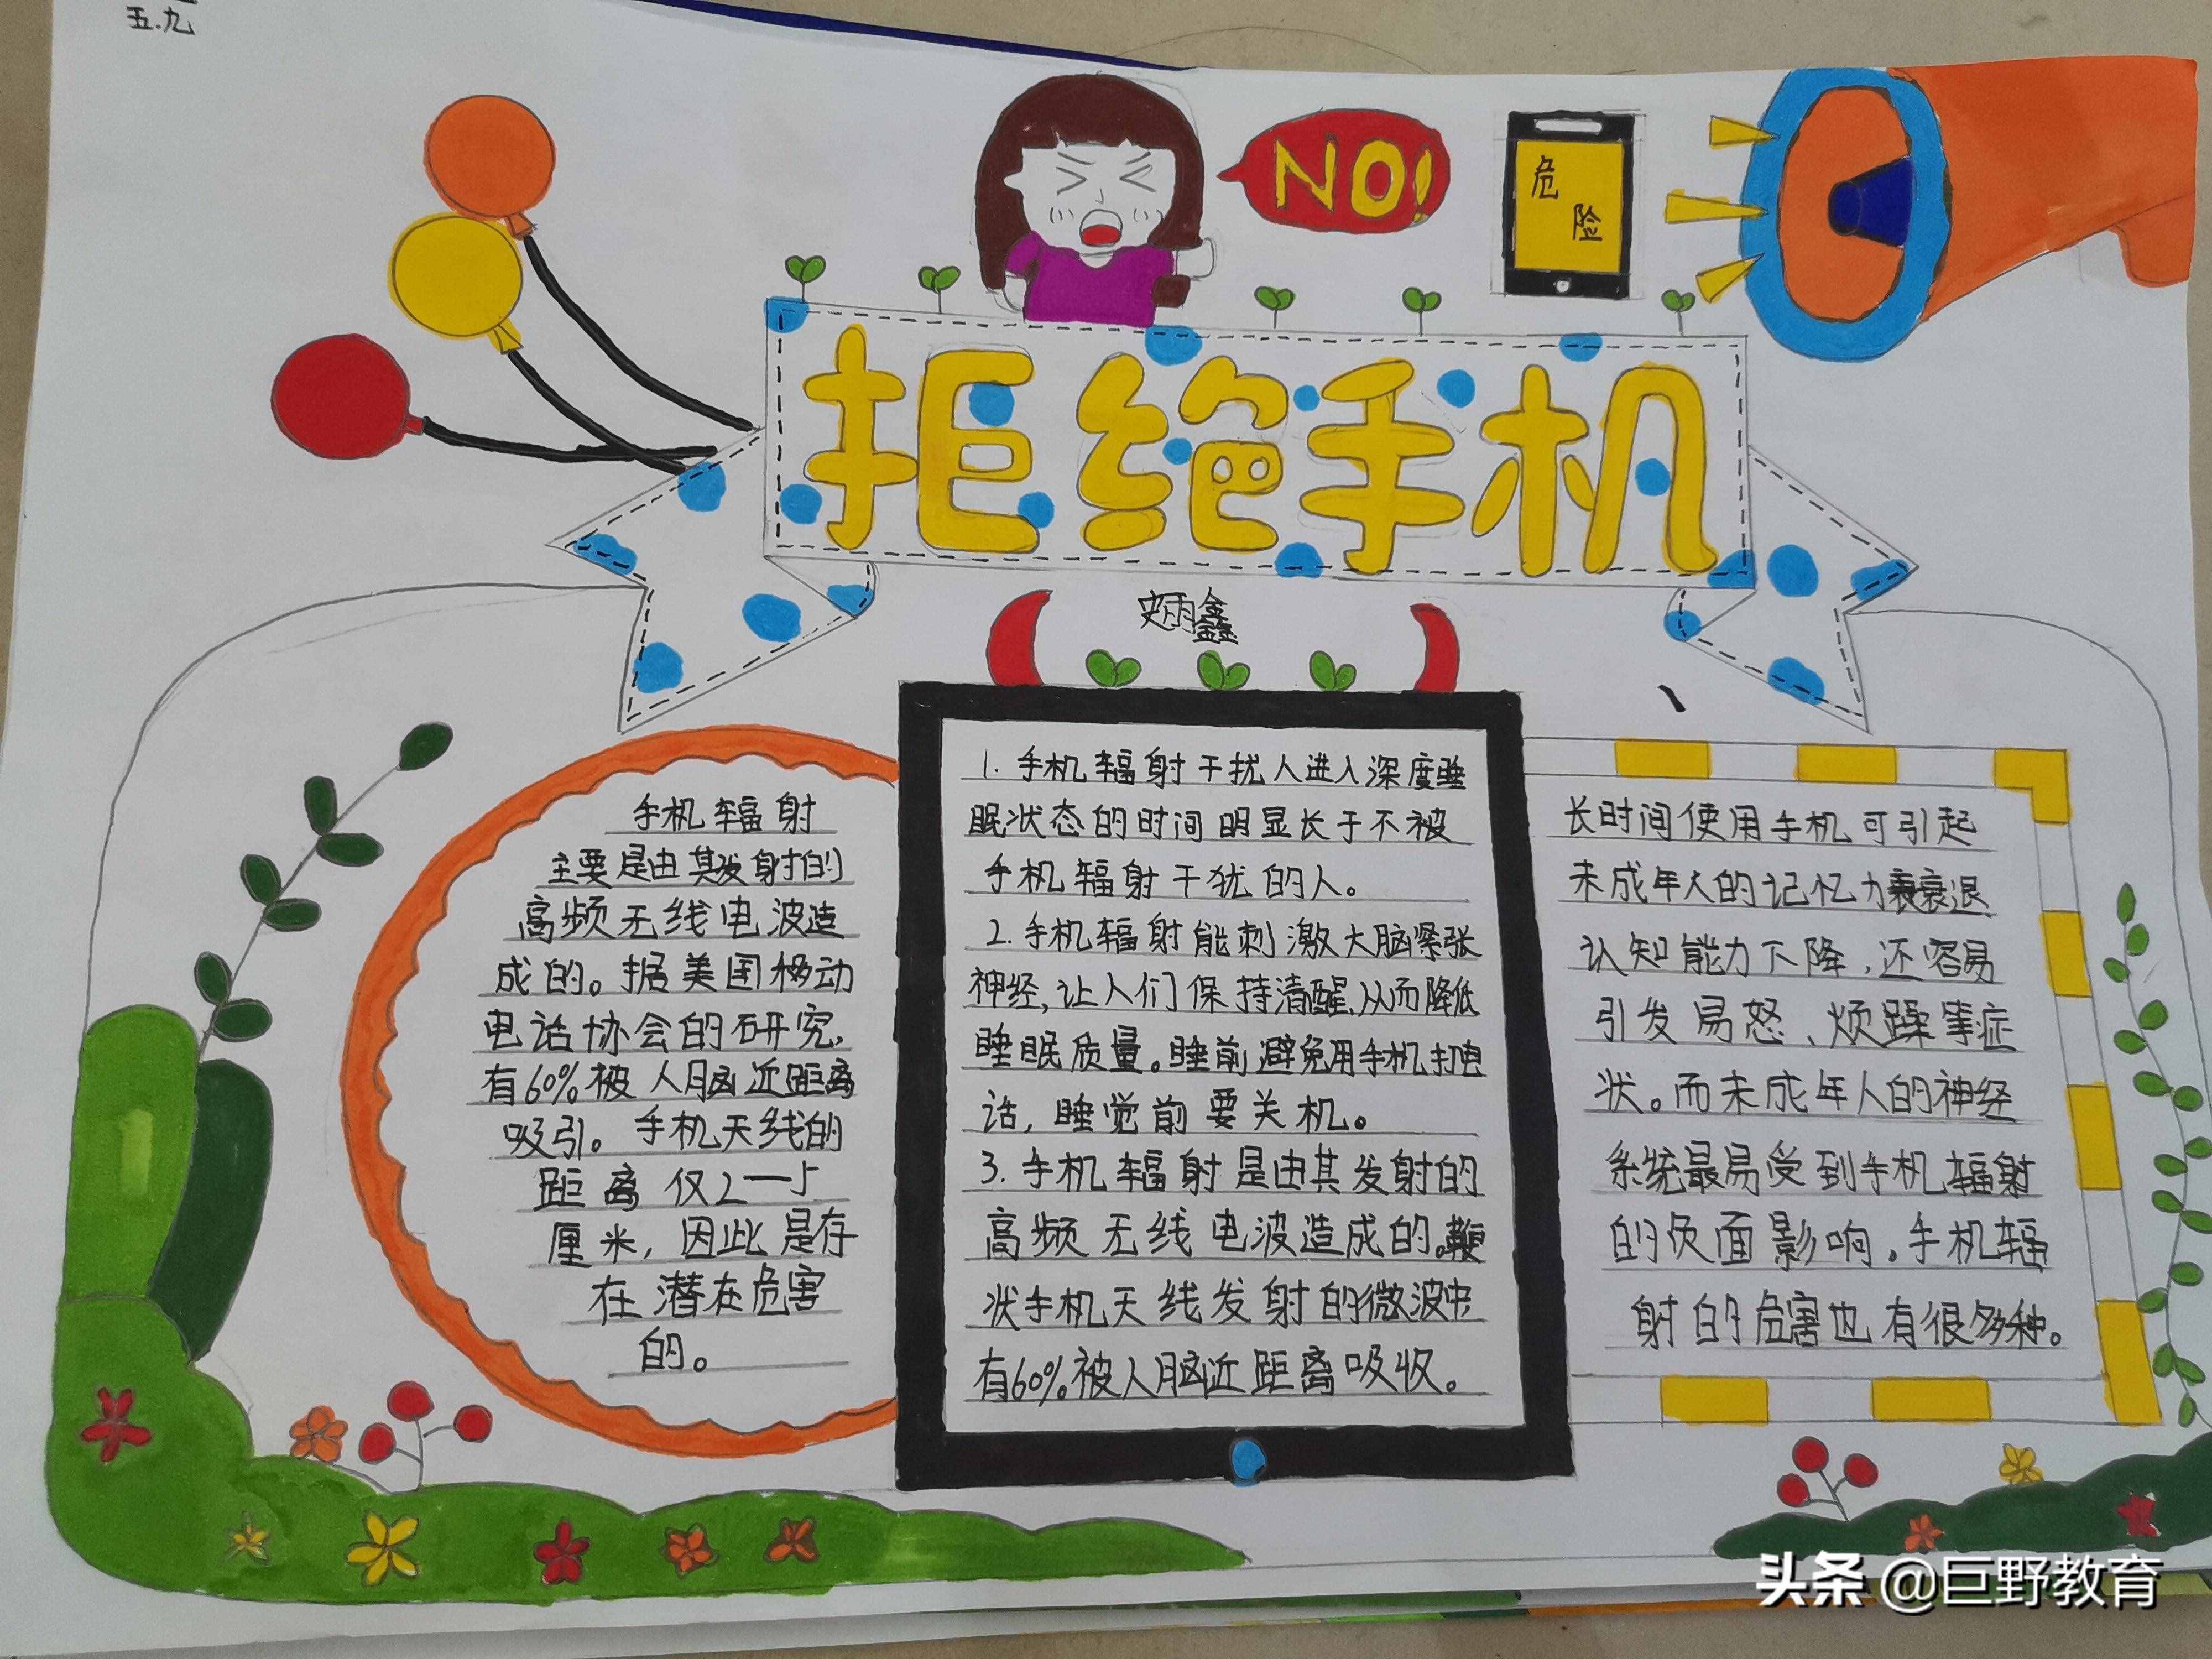 五.九
NO!
危
险
拒绝手机
史雨鑫
手机辐射
主要是由其发射的
高频无线电波造
成的。据美国移动
电话协会的研究,
有60%被人脑近距离
吸引。手机天线的
距离仅2—5
厘米,因此是存
在潜在危害
的。
1.手机辐射干扰人进入深度睡
眠状态的时间明显长于不被
手机辐射干扰的人。
2.手机辐射能刺激大脑紧张
神经,让人们保持清醒,从而降低
睡眠质量。睡前避免用手机打电
话,睡觉前要关机。
3.手机辐射是由其发射的
高频无线电波造成的。鞭
状手机天线发射的微波中
有60%被人脑近距离吸收。
长时间使用手机可引起
未成年人的记忆力衰退
认知能力下降,还容易
引发易怒、烦躁等症
状。而未成年人的神经
系统最易受到手机辐射
的负面影响。手机辐
射的危害也有很多种。
头条 @巨野教育